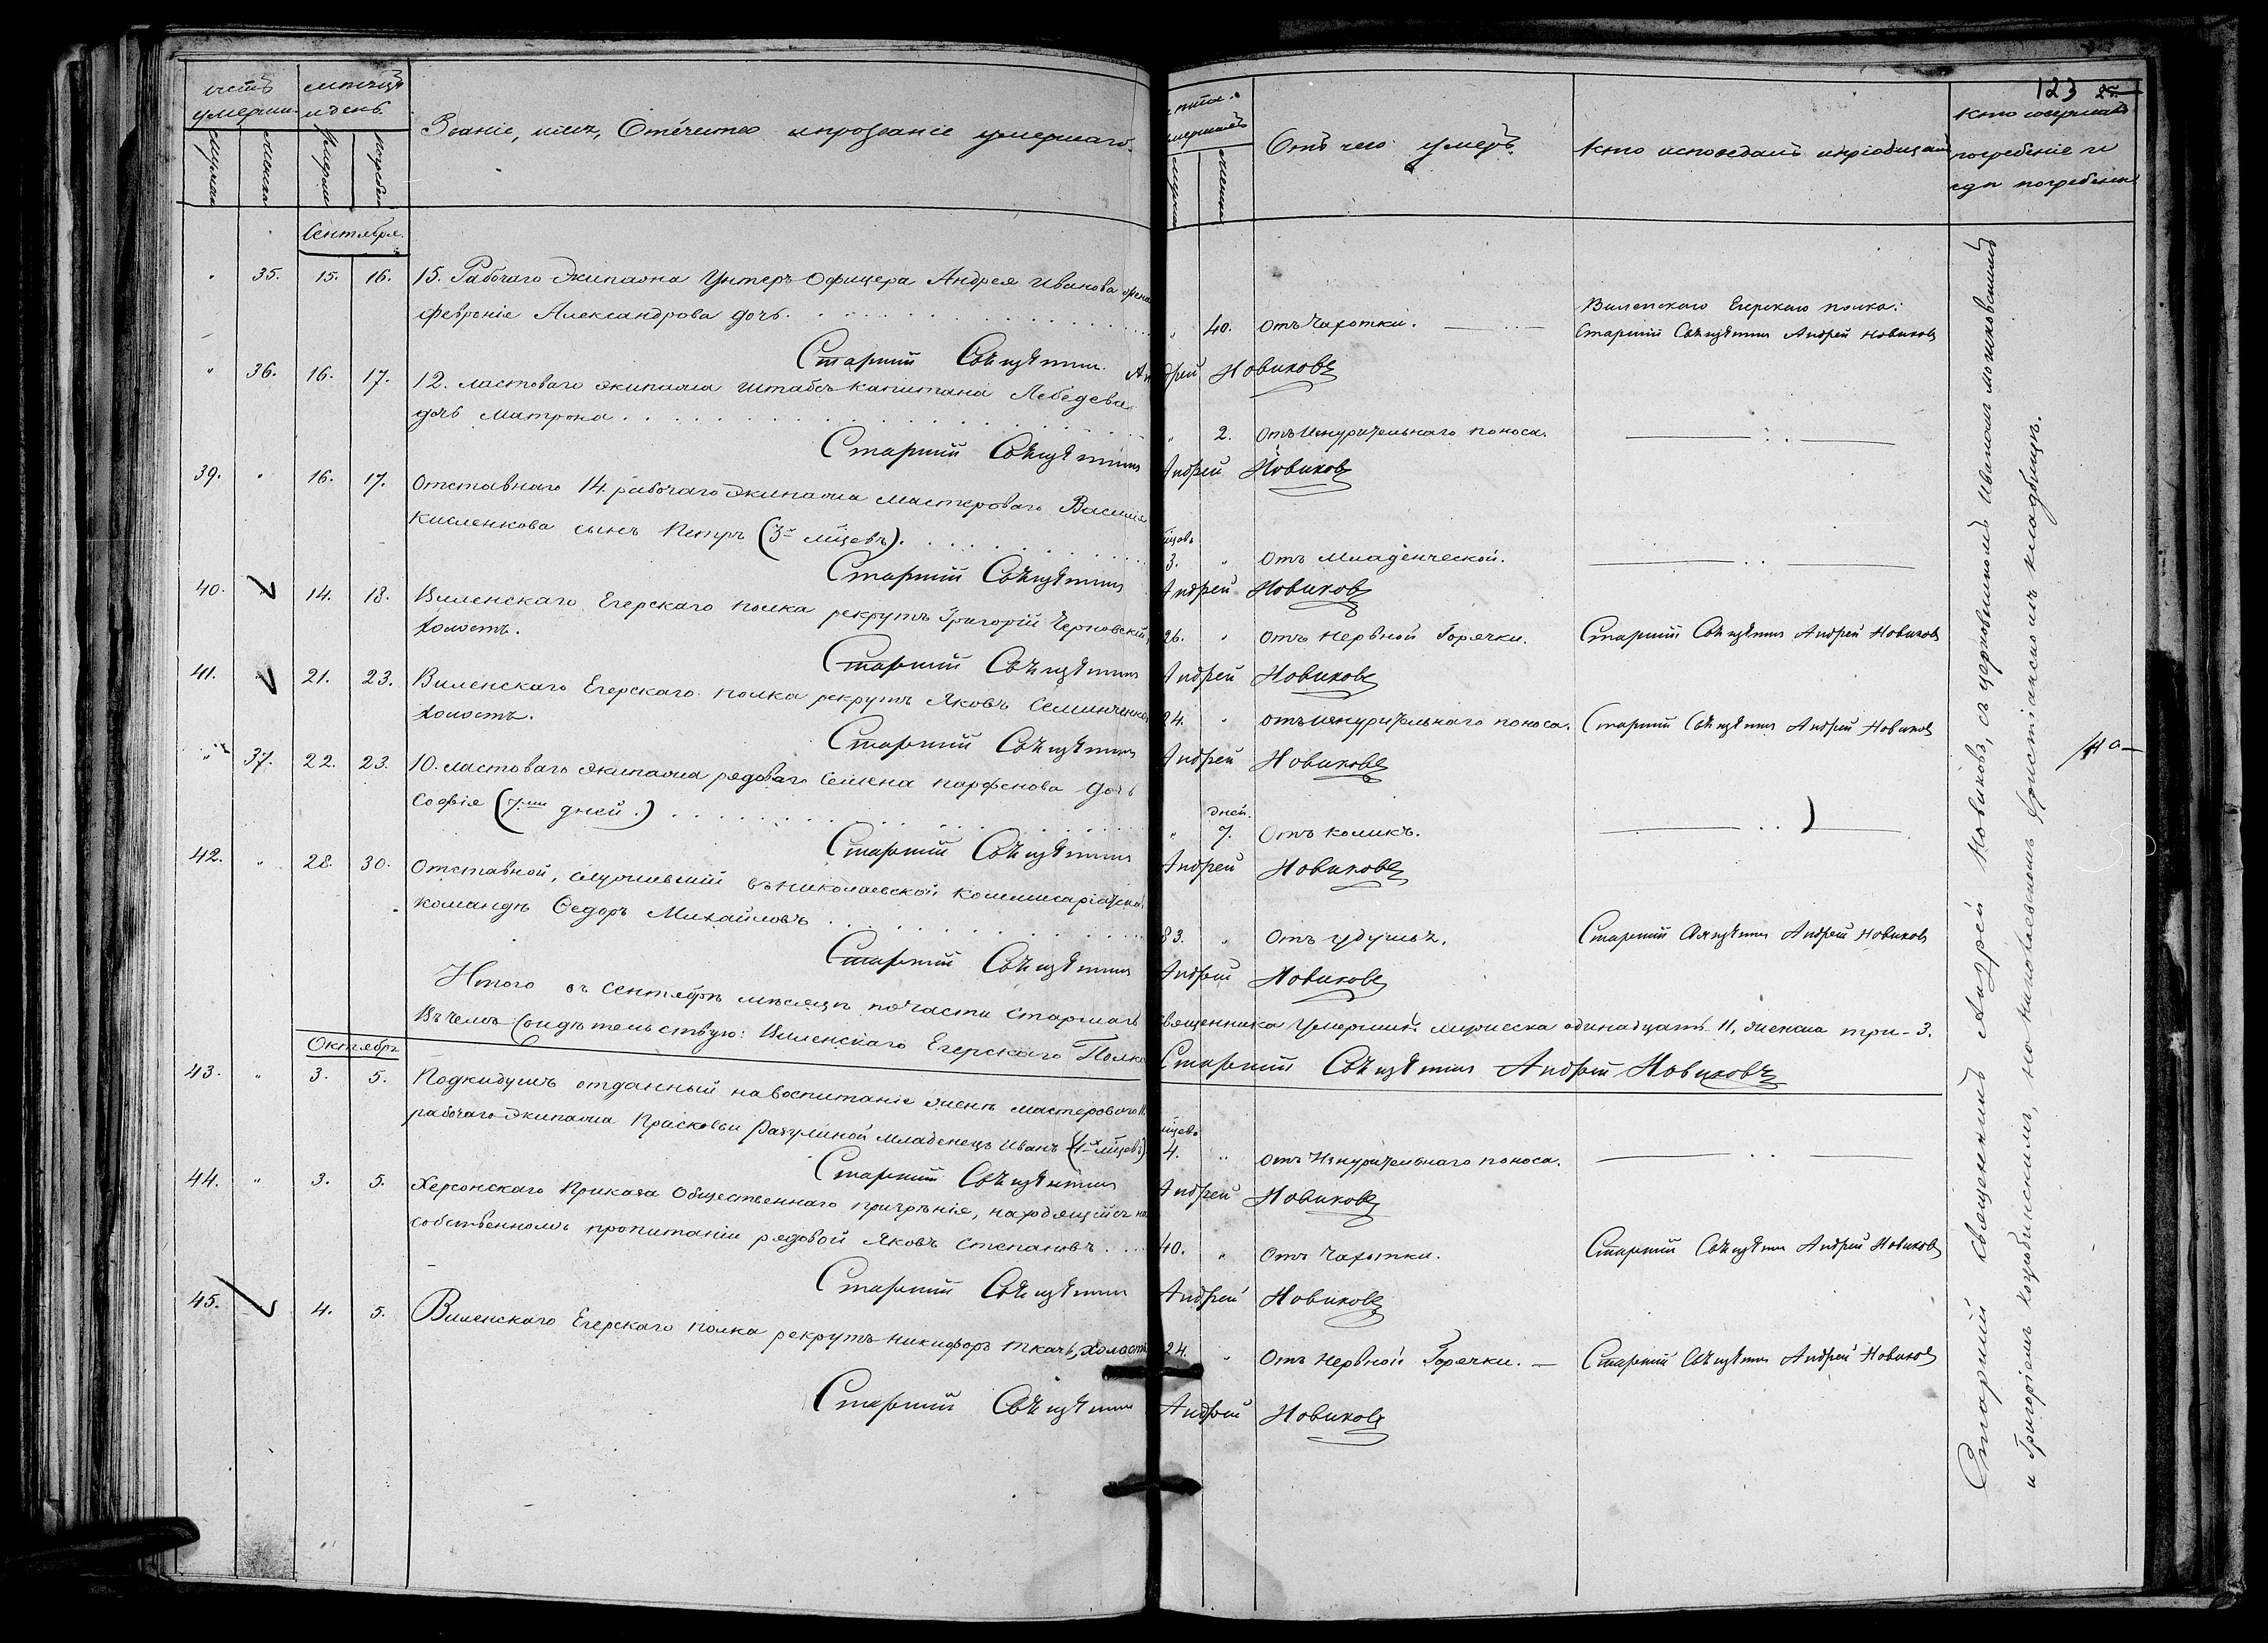 123
счетъ умерши
мѣсяцъ и день
Званіе, имя, Отечество и прозваніе умершаго.
умершихъ
Отъ чего умеръ.
Кто исповѣдалъ и пріобщалъ
Кто совершалъ погребеніе и гдѣ погребены
Мужска
Женска
Умерли
Погребены
Сентября.
35. 15. 16. 15. Рабочаго Экипажа Унтеръ-Офицера Андрея Иванова жена
Февронія Александрова дочь.
40. Отъ Чахотки.
Виленскаго Егерскаго полка:
Старшій Священникъ Андрей Новиковъ
Старшій Священникъ Андрей Новиковъ
36. 16. 17. 12. ластоваго экипажа Штабсъ-Капитана Лебедева
дочь Матрона
2. Отъ Изнурительнаго поноса.
Старшій Священникъ Андрей Новиковъ
39. 16. 17. Отставнаго 14. рабочаго Экипажа Мастероваго Василія
Кисленкова сынъ Петръ (3х мѣсцевъ).
3. Отъ Младенческой.
Старшій Священникъ Андрей Новиковъ
40. 14. 18. Виленскаго Егерскаго полка рекрутъ Григорій Черновскій,
холостъ.
26. Отъ Нервной Горячки. Старшій Священникъ Андрей Новиковъ
Старшій Священникъ Андрей Новиковъ
41. 21. 23. Виленскаго Егерскаго полка рекрутъ Яковъ Семинченко
холостъ.
24. отъ изнурительнаго поноса. Старшій Священникъ Андрей Новиковъ
Старшій Священникъ Андрей Новиковъ
37. 22. 23. 10. ластоваго экипажа рядоваго Семена Парфенова дочь
Софія (7ми дней.)
дней.
7. Отъ коликъ.
Старшій Священникъ Андрей Новиковъ
42. 28. 30. Отставной, служившій въ Николаевской Коммисаріатской
командѣ Ѳедоръ Михайловъ
83. Отъ удушья. Старшій Священникъ Андрей Новиковъ
Старшій Священникъ Андрей Новиковъ
Итого въ Сентябрѣ мѣсяцѣ по части Старшаго Священника умершихъ мужеска одинадцать 11, женска три - 3.
Въ чемъ свидѣтельствую: Виленскаго Егерскаго Полка Старшій Священникъ Андрей Новиковъ
Октябрь
43. 3. 5. Подкидушъ отданный на воспитаніе женѣ мастероваго
рабочаго Экипажа Прасковьи Рагулиной младенецъ Иванъ (4х мѣсцевъ)
4. отъ Изнурительнаго поноса.
Старшій Священникъ Андрей Новиковъ
44. 3. 5. Херсонскаго Приказа Общественнаго призрѣнія, находящійся на
собственномъ пропитаніи рядовой Яковъ Степановъ.
40. Отъ Чахотки. Старшій Священникъ Андрей Новиковъ
Старшій Священникъ Андрей Новиковъ
45. 4. 5. Виленскаго Егерскаго полка рекрутъ Никифоръ Ткачъ, холостъ
24. Отъ Нервной Горячки. Старшій Священникъ Андрей Новиковъ
Старшій Священникъ Андрей Новиковъ
Старшій Священникъ Андрей Новиковъ, съ церковникомъ Иваномъ
и Григоріемъ на Николаевскомъ христіанскомъ кладбищѣ.